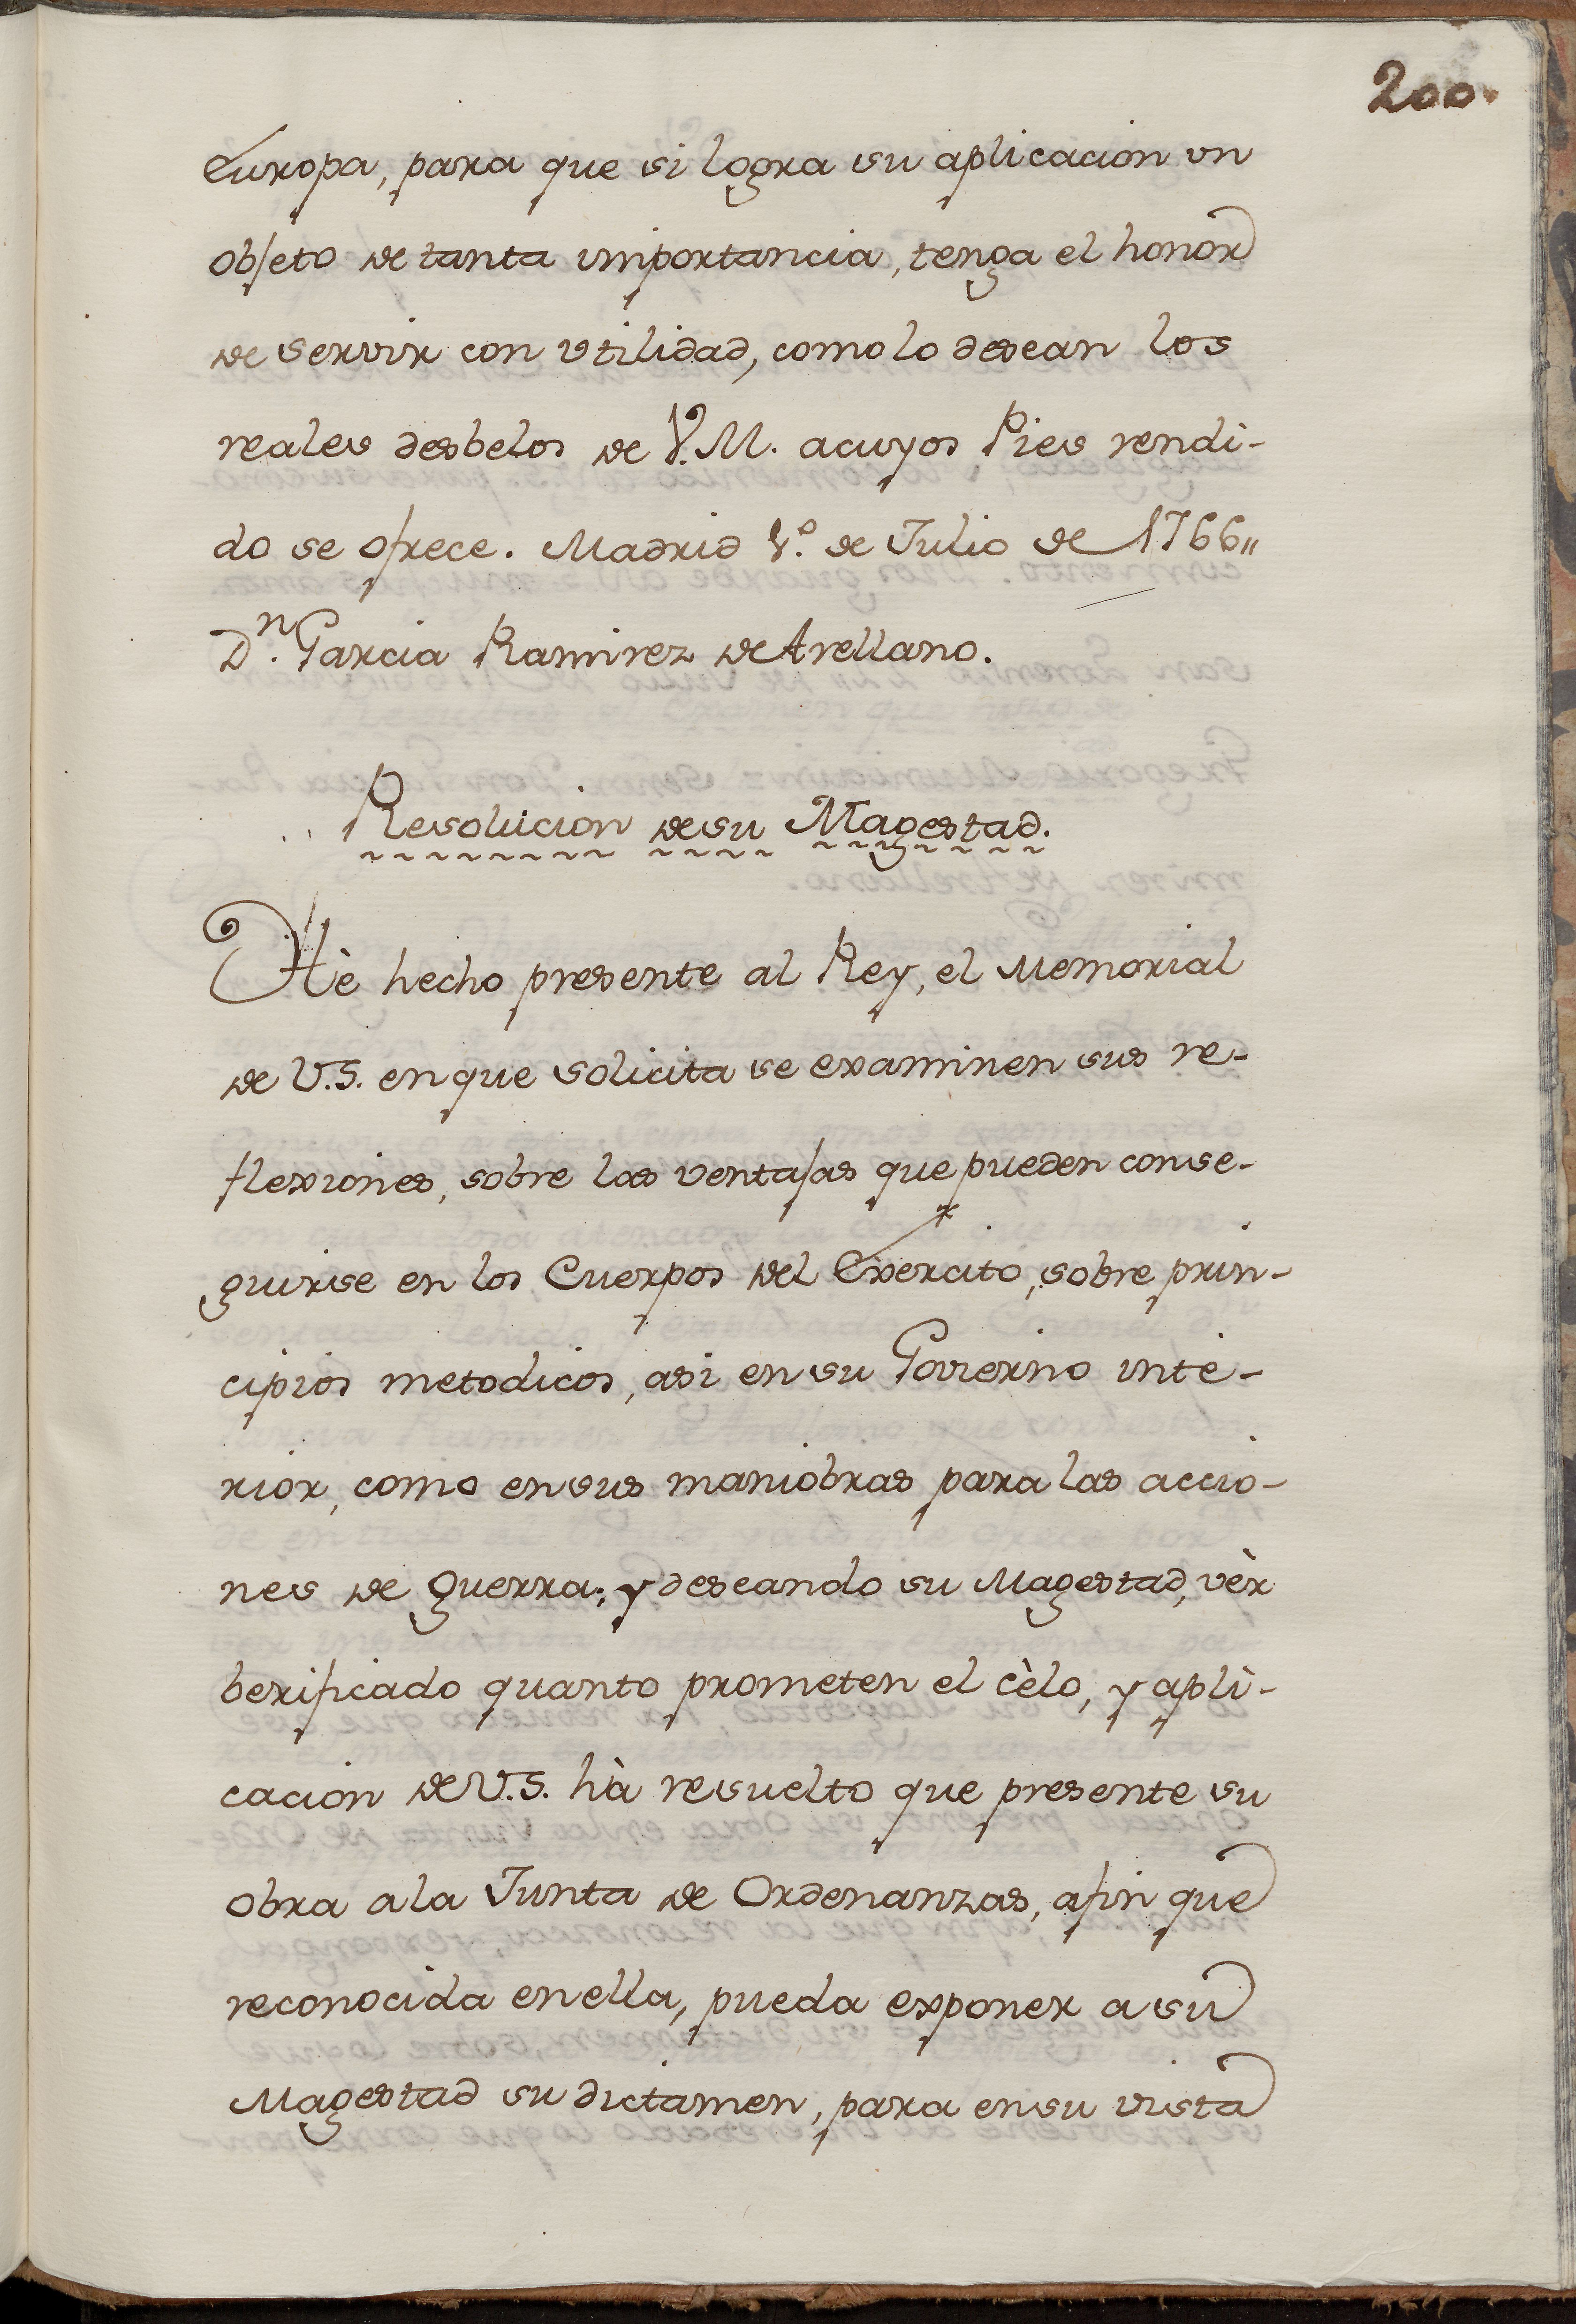 200.
Europa, para que si logra su aplicacion vn
objeto de tanta importancia, tenga el honor
de servir con vtilidad, como lo desean los
reales desbelos de V.M. acuyos Pies rendi-
do se ofrece. Madrid 1.º de Julio de 1766„
Dn. Garcia Ramirez de Arellano.
Resolucion de su Magestad.
Hè hecho presente al Rey, el Memorial
de V.S. en que solicita se examinen sus re-
flexiones, sobre las ventajas que pueden conse-
guirse en los Cuerpos del Exercito, sobre prin-
cipios metodicos, asi en su Govierno inte-
rior, como en sus maniobras para las accio-
nes de guerra; y deseando su Magestad, vèr
berificado quanto prometen el cèlo, y apli-
cacion de V.S. hà resuelto que presente su
obra a la Junta de Ordenanzas, afin que
reconocida en ella, pueda exponer a su
Magestad su dictamen, para en su vista